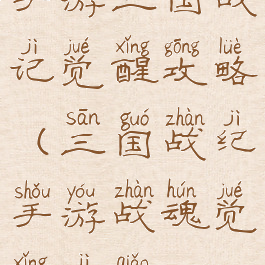 手游三国战
jì jué xǐng gōng lüè
记觉醒攻略
sān guó zhàn jì
（三国战纪
shǒu yóu zhàn hún jué
手游战魂觉
xǐng jì qiǎo